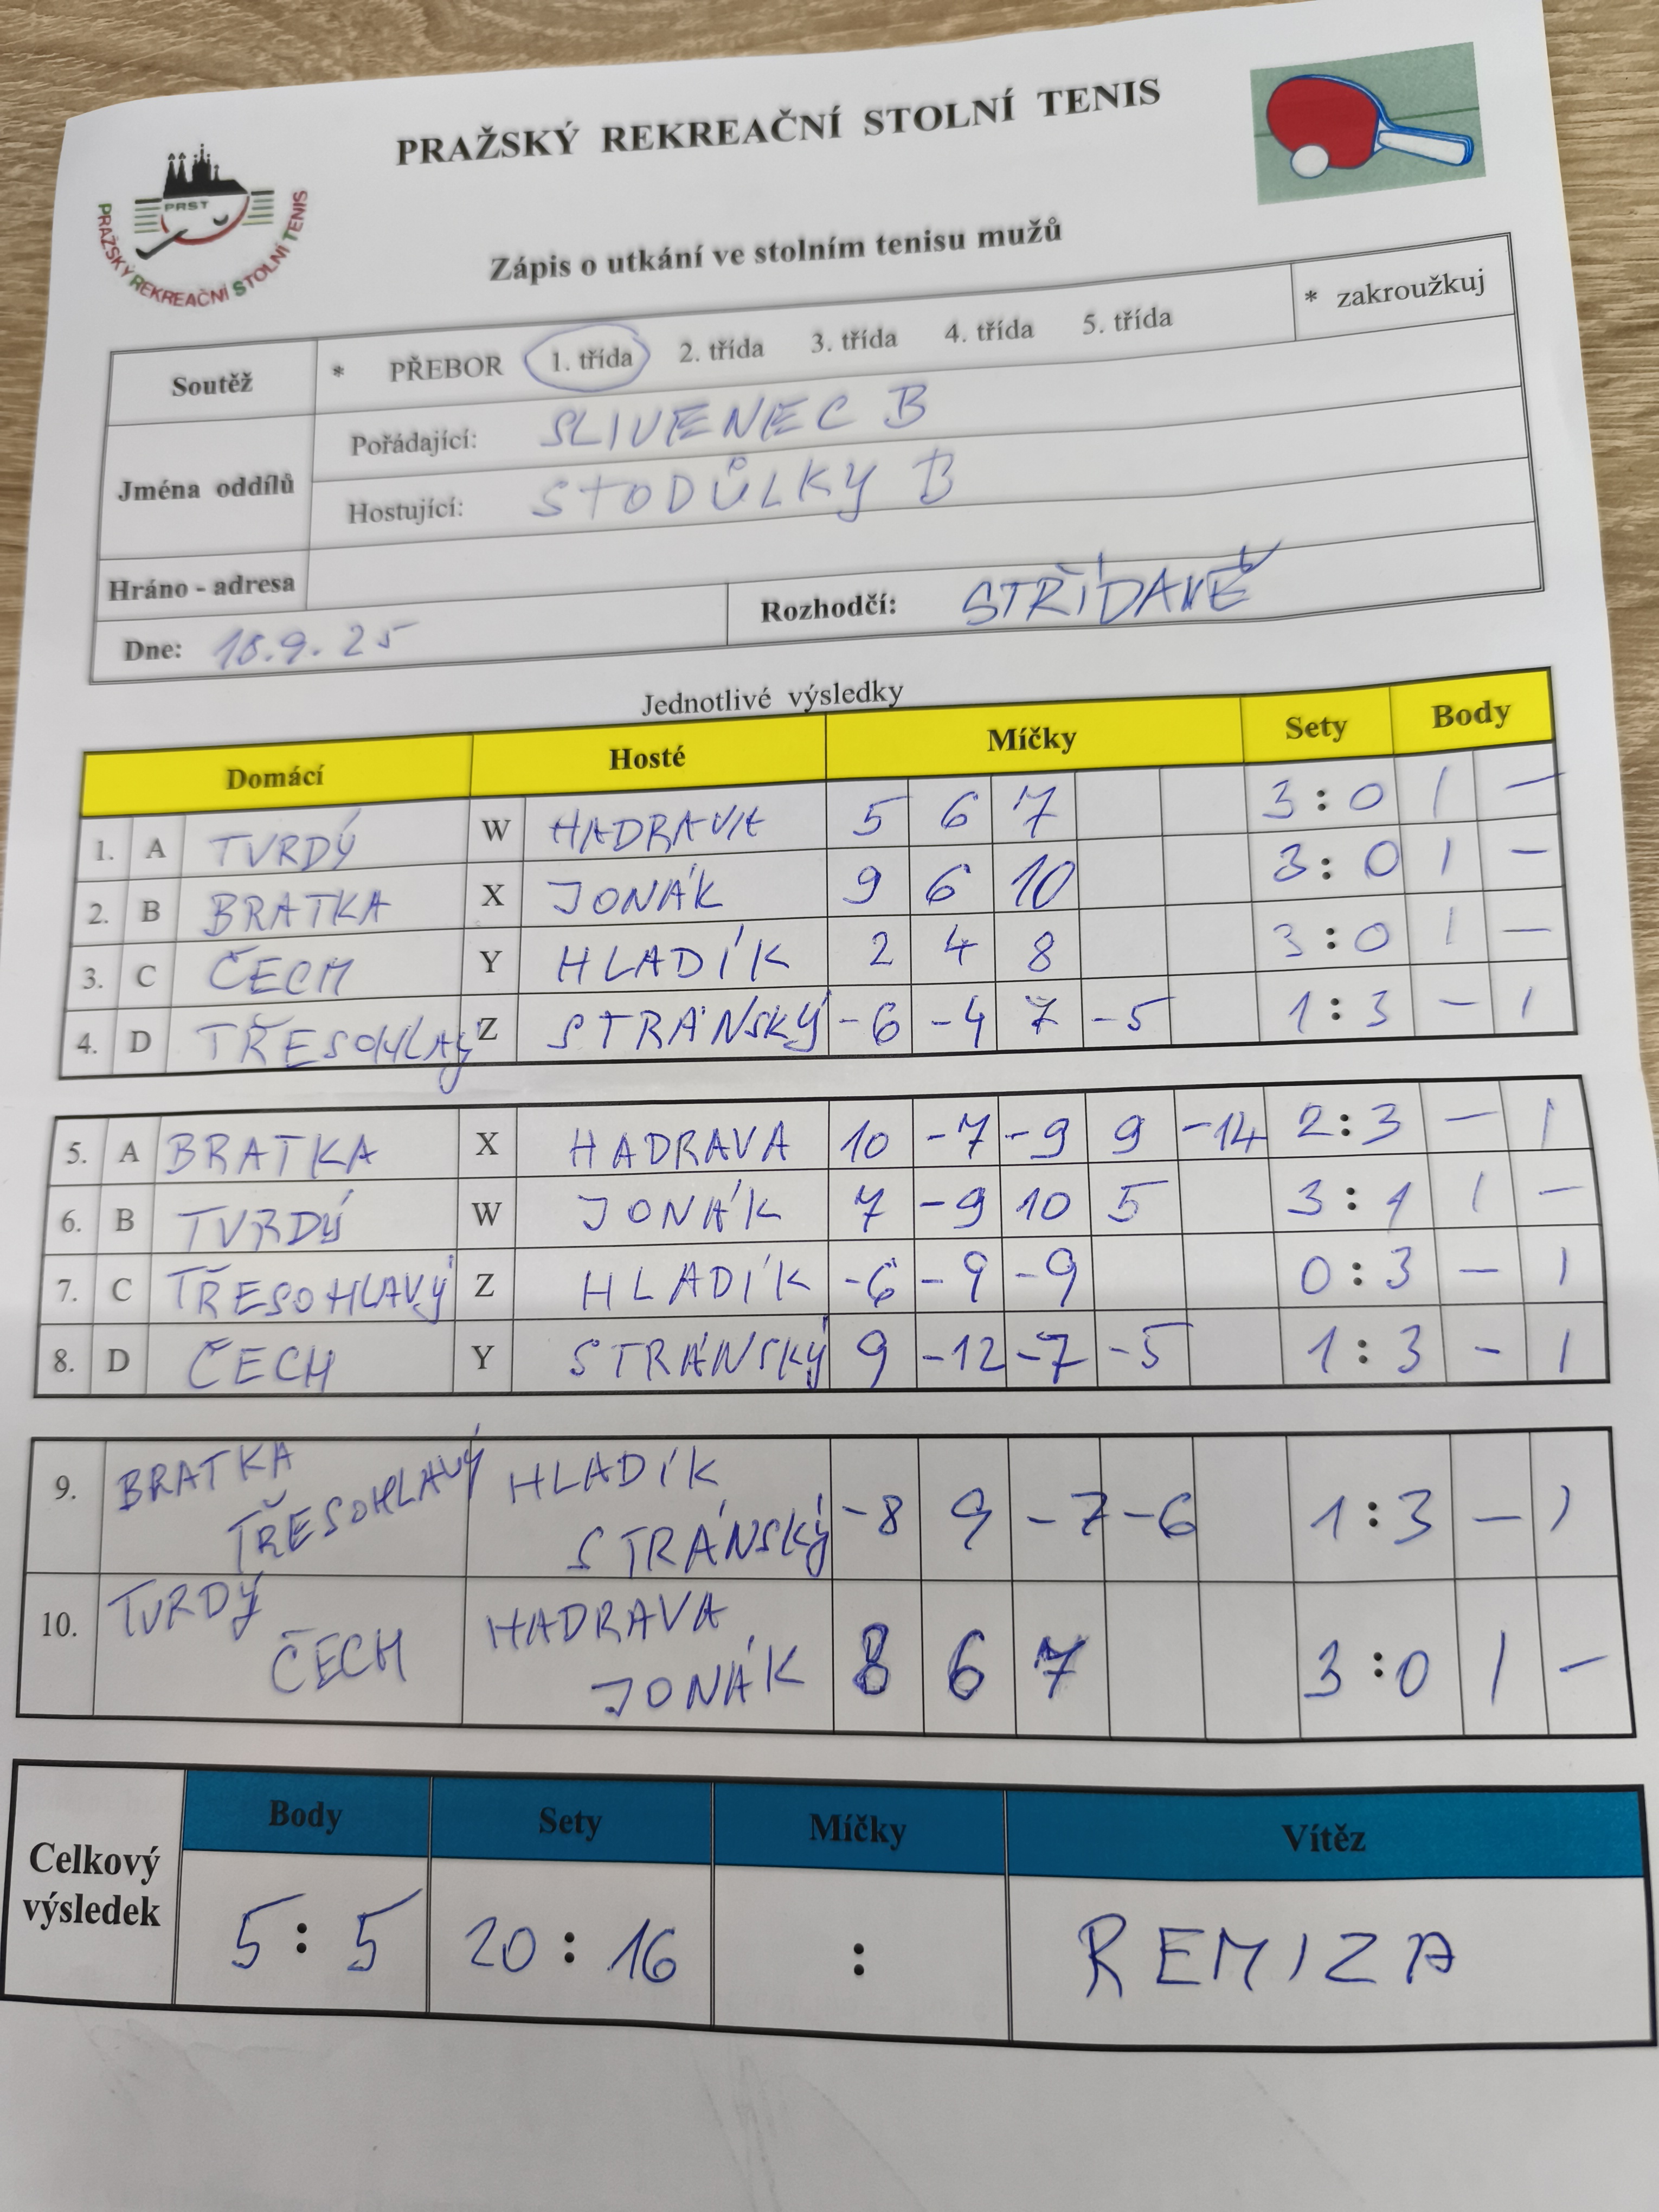 PRAŽSKÝ REKREAČNÍ STOLNÍ TENIS
PRST
PRAŽSKÝ REKREAČNÍ STOLNÍ TENIS
Zápis o utkání ve stolním tenisu mužů
Soutěž * PŘEBOR 1. třída 2. třída 3. třída 4. třída 5. třída * zakroužkuj
Jména oddílů
Pořádající: SLIVENEC B
Hostující: STODŮLKY B
Hráno - adresa
Dne: 18.9.25 Rozhodčí: STŘÍDAVĚ
Jednotlivé výsledky
Domácí Hosté Míčky Sety Body
1. A TVRDÝ W HADRAVA 5 6 7 3:0 1 -
2. B BRATKA X JONÁK 9 6 10 3:0 1 -
3. C ČECH Y HLADÍK 2 4 8 3:0 1 -
4. D TŘESOHLAVÝ Z STRÁNSKÝ -6 -4 7 -5 1:3 - 1
5. A BRATKA X HADRAVA 10 -7 -9 9 -14 2:3 - 1
6. B TVRDÝ W JONÁK 7 -9 10 5 3:1 1 -
7. C TŘESOHLAVÝ Z HLADÍK -6 -9 -9 0:3 - 1
8. D ČECH Y STRÁNSKÝ 9 -12 -7 -5 1:3 - 1
9. BRATKA HLADÍK
TŘESOHLAVÝ STRÁNSKÝ -8 9 -7 -6 1:3 - 1
10. TVRDÝ HADRAVA
ČECH JONÁK 8 6 7 3:0 1 -
Celkový výsledek
Body Sety Míčky Vítěz
5:5 20:16 : REMIZA